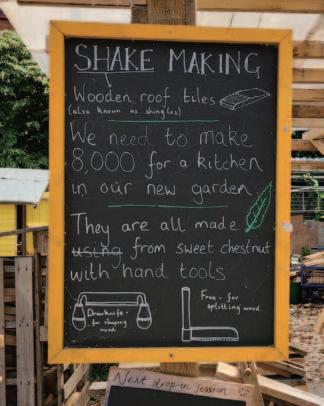 SHAKE MAKING
Wooden roof tiles
(also known as shingles)
We need to make
8,000 for a kitchen
in our new garden
They are all made
using from sweet chestnut
with hand tools
Drawknife -
for shaping
wood
Froe - for
splitting wood
Next drop-in session